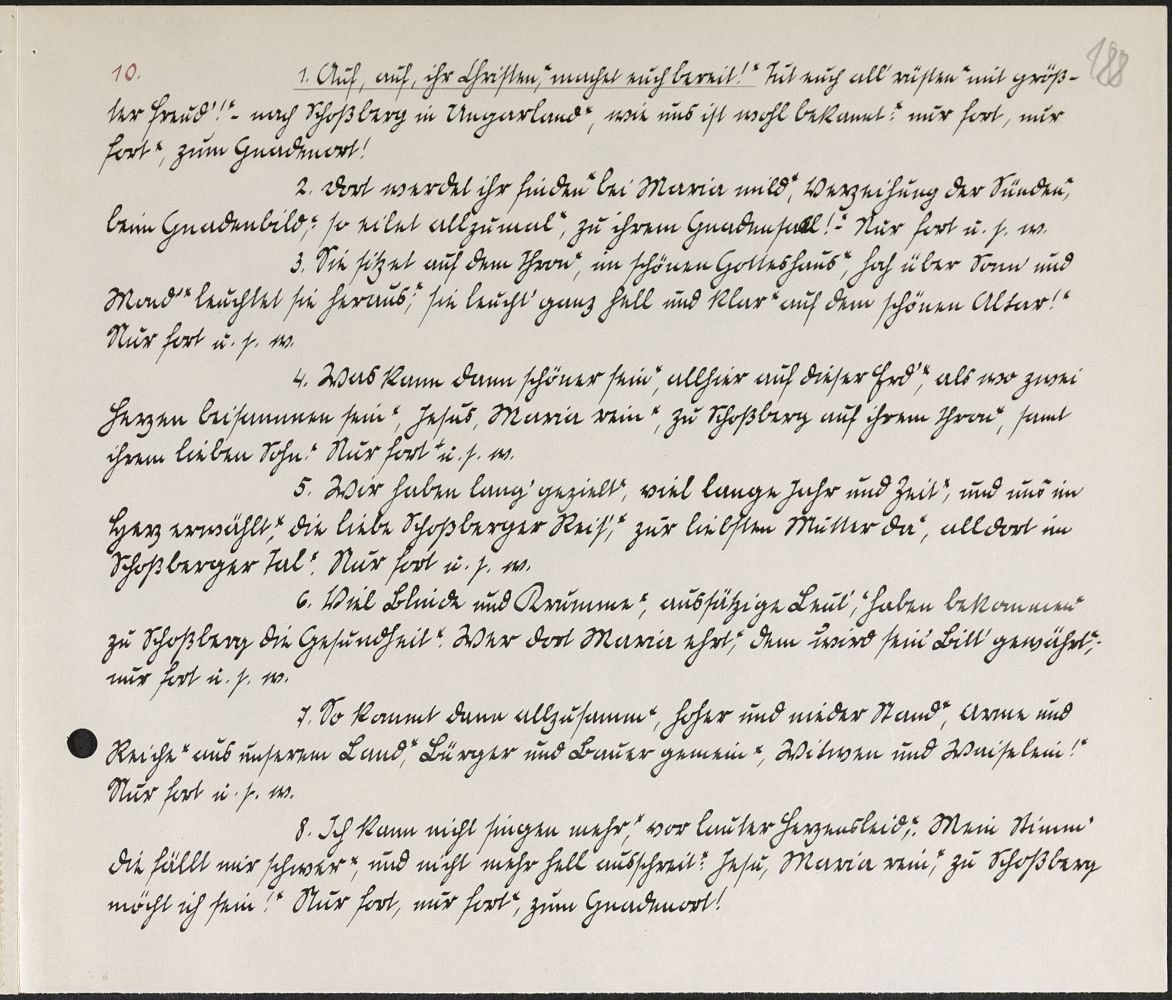 188
10. 1. Auf, auf, ihr Christen,* machet euch bereit!* Tut euch all' rüsten* mit größ-
ter Freud'!* - nach Schoßberg in Ungarland*, wie uns ist wohl bekannt:* nur fort, nur
fort*, zum Gnadenort!
2. Dort werdet ihr finden* bei Maria mild*, Verzeihung der Sünden*,
beim Gnadenbild,* so eilet allzumal*, zu ihrem Gnadensaal!* Nur fort u. s. w.
3. Sie sitzet auf dem Thron*, im schönen Gotteshaus*, hoch über Sonn' und
Mond'* leuchtet sie heraus;* sie leucht' ganz hell und klar* auf dem schönen Altar!*
Nur fort u. s. w.
4. Was kann dann schöner sein*, allhier auf dieser Erd'*, als wo zwei
Herzen beisammen sein*, Jesus, Maria rein*, zu Schoßberg auf ihrem Thron*, samt
ihrem lieben Sohn.* Nur fort* u. s. w.
5. Wir haben lang' gezielt*, viel lange Jahr und Zeit*, und uns im
Herz erwählt,* die liebe Schoßberger Reis',* zur liebsten Mutter da*, alldort im
Schoßberger Tal*. Nur fort u. s. w.
6. Viel Blinde und Krumme*, aussätzige Leut',* haben bekommen*
zu Schoßberg die Gesundheit*. Wer dort Maria ehrt,* dem wird sein' Bitt' gewährt*,-
nur fort u. s. w.
7. So kommt dann allzusamm*, hoher und nieder Stand*, Arme und
Reiche* aus unserem Land,* Bürger und Bauer gemein*, Witwen und Waiselein!*
Nur fort u. s. w.
8. Ich kann nicht singen mehr,* vor lauter Herzensleid,* Mein Stimm'
die fällt mir schwer*, und nicht mehr hell ausschreit:* Jesu, Maria rein,* zu Schoßberg
möcht ich sein!* Nur fort, nur fort*, zum Gnadenort!